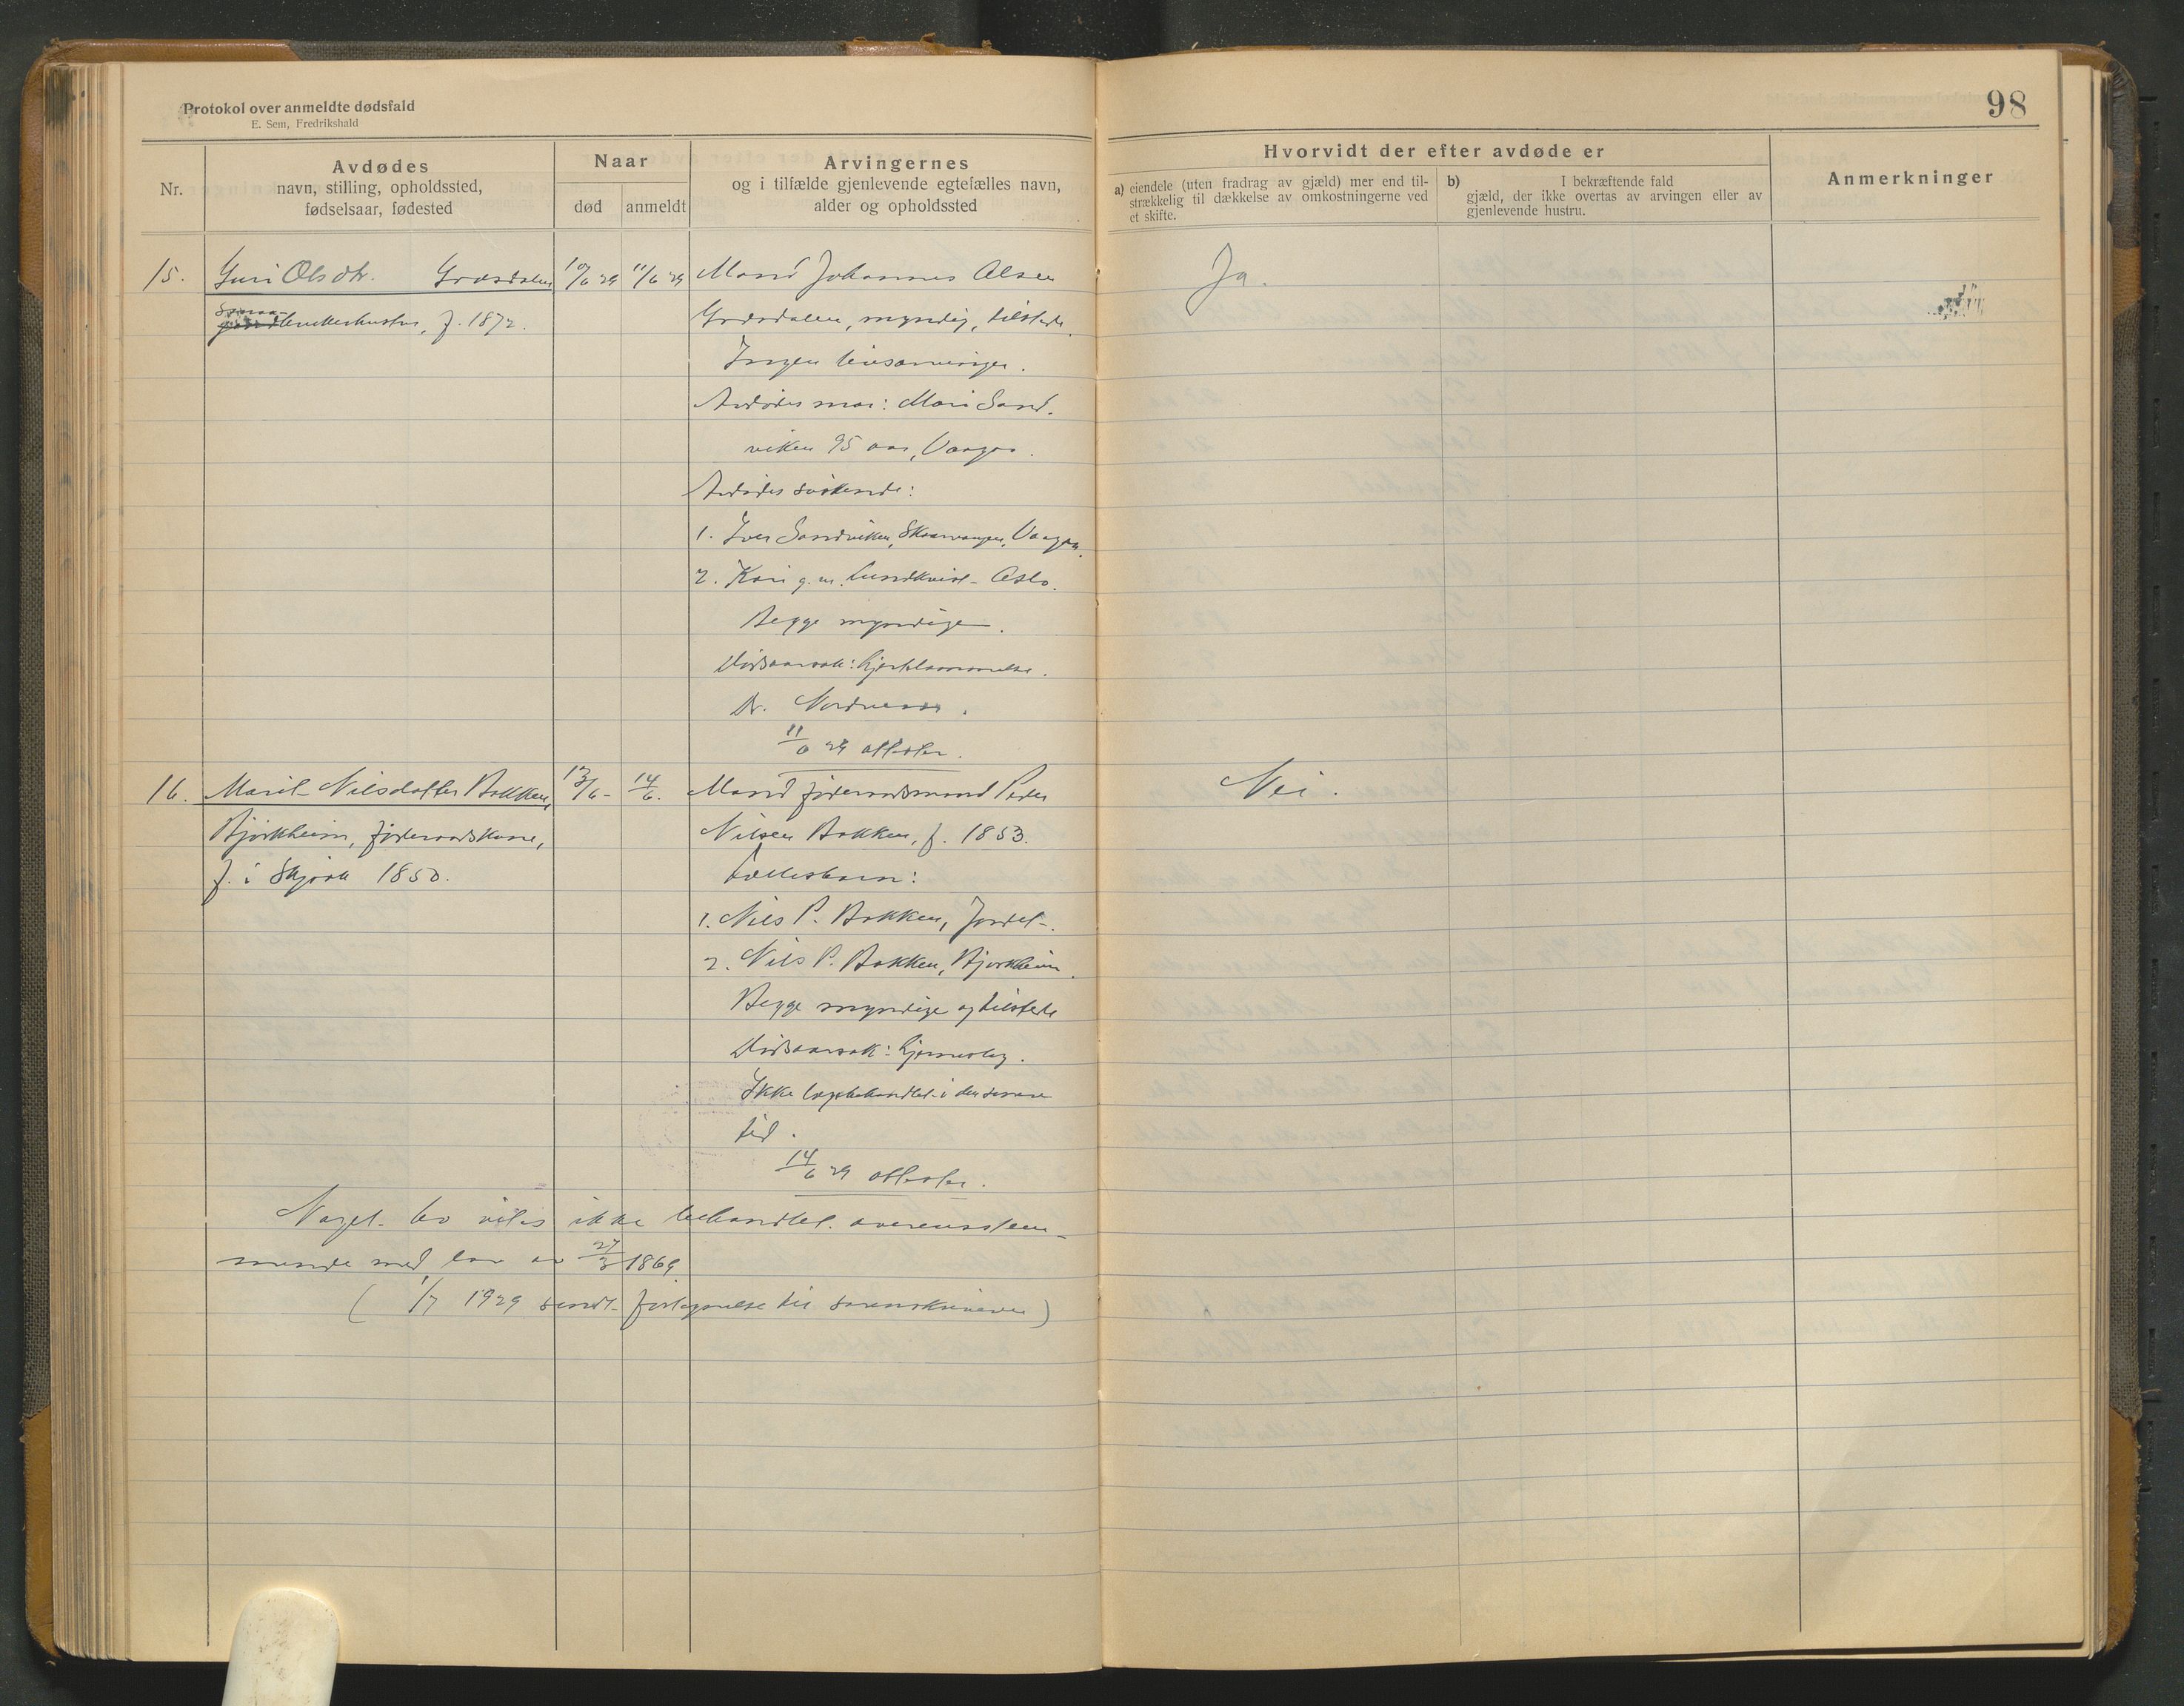 Protokol over anmeldte dødsfald
E. Sem, Fredrikshald
98
Nr.
Avdødes
navn, stilling, opholdssted,
fødselsaar, fødested
Naar
død
anmeldt
Arvingernes
og i tilfælde gjenlevende egtefælles navn,
alder og opholdssted
Hvorvidt der efter avdøde er
a) eiendele (uten fradrag av gjæld) mer end til-
strækkelig til dækkelse av omkostningerne ved
et skifte.
b) I bekræftende fald
gjæld, der ikke overtas av arvingen eller av
gjenlevende hustru.
Anmerkninger
15.
Guri Olsdtr. Grøsdalen
smaa-
brukerhustru, f. 1872.
10/6 29
11/6 29
Mand Johannes Olsen
Grøsdalen, myndig, tilstede.
Ingen livsarvinger.
Avdødes mor: Mari Sand-
viken 95 aar, Vaagaa.
Avdødes søskende:
1. Iver Sandviken, Skaarvangen, Vaagaa.
2. Kari g.m. Lundkvist - Oslo.
Begge myndige.
Dødsaarsak: hjertelammelse.
Dr. Nordraas.
11/6 29 attester.
Ja.
16.
Marit Nilsdatter Bakken,
Bjørkheim, føderaadskone,
f. i Skjaak 1850.
13/6 -
14/6.
Mand føderaadsmand Peder
Nilsen Bakken, f. 1853.
Fællesbarn:
1. Nils P. Bakken, Jordet.
2. Nils P. Bakken, Bjørkheim.
Begge myndige og tilstede
Dødsaarsak: hjerneslag.
Ikke lægebehandlet i den senere
tid.
14/6 29 attester.
Nei.
Noget bo vites ikke behandlet overensstem-
mende med lov av 27/3 1869.
( 1/7 1929 sendt fortegnelse til sorenskriveren )